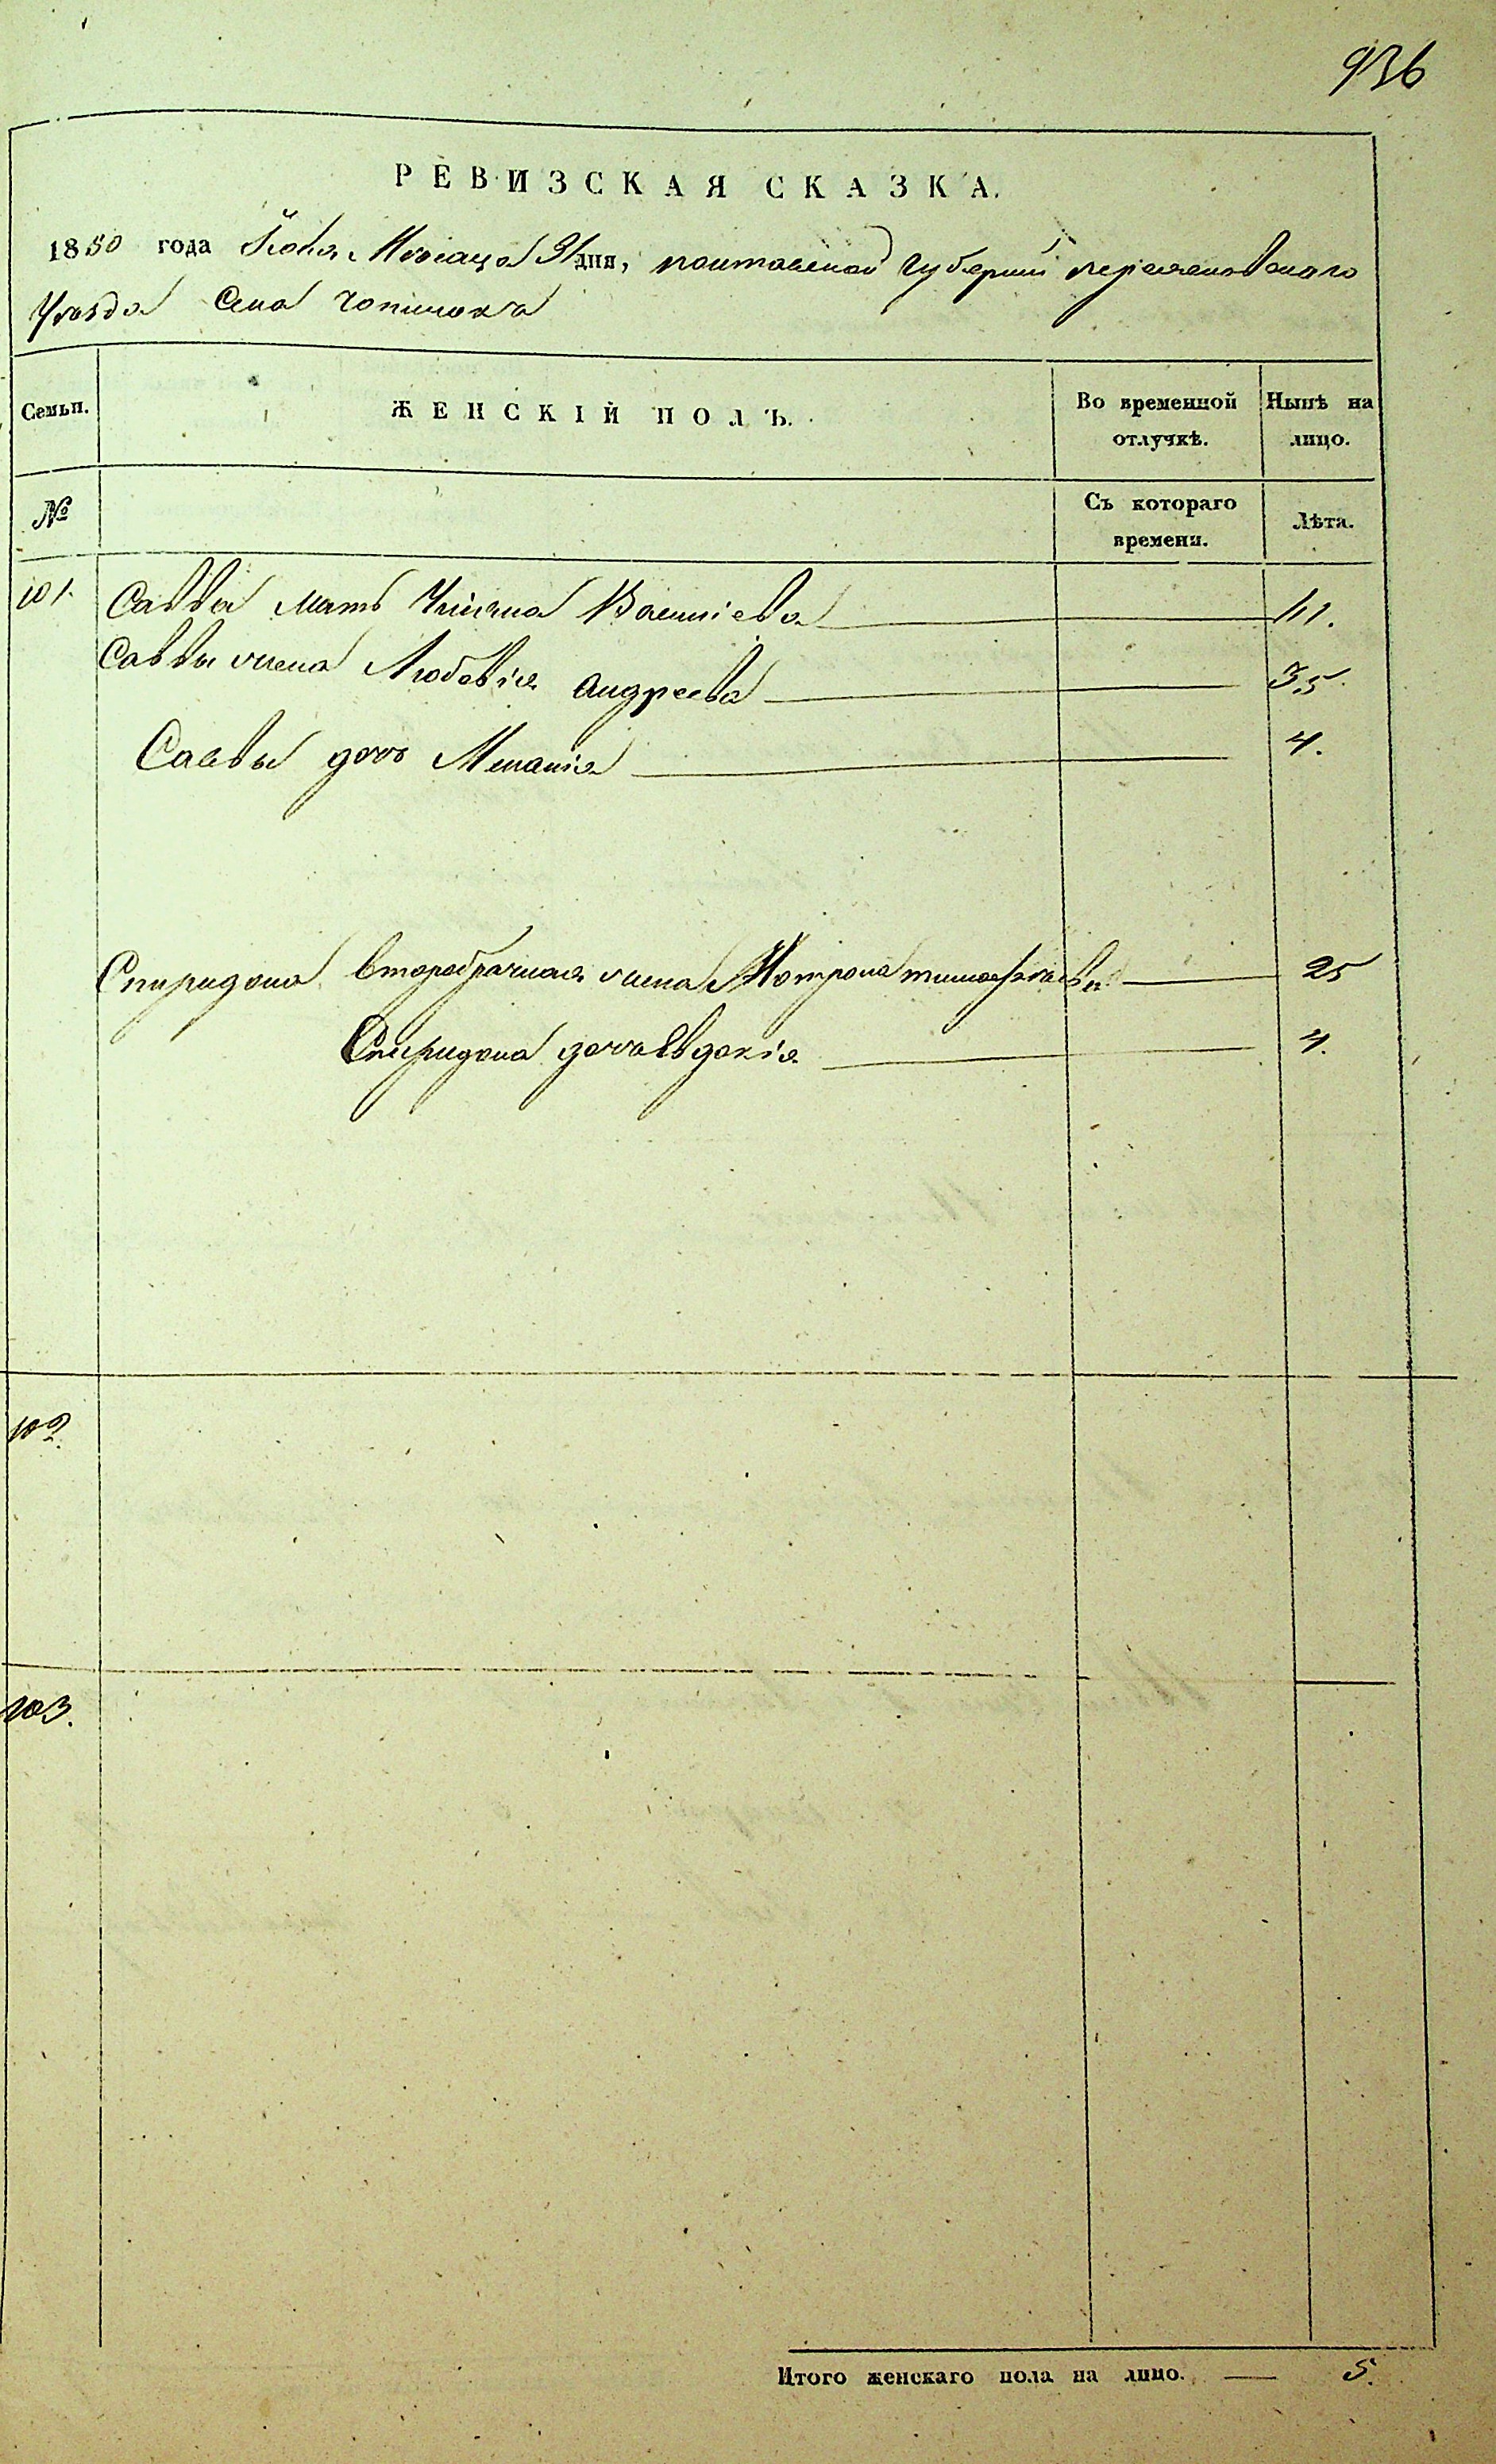 936
РЕВИЗСКАЯ СКАЗКА.
1850 года Іюля Месяца 31 дня, полтавской губерніи переяславского
Уезда Села чопилока
Семьи. ЖЕНСКІЙ ПОЛЪ. Во временной отлучкѣ. Нынѣ на лицо.
№ Съ котораго времени. Лѣта.
101. Саввы мать Васильева 61.
Саввы жена Любовія андреева 35
Саввы дочь Меланія 4.
Спиридона второбрачная жена Мотрона тимофеева 25
Спиридона дочь Евдокія 4.
102.
103.
Итого женскаго пола на лицо. — 5.